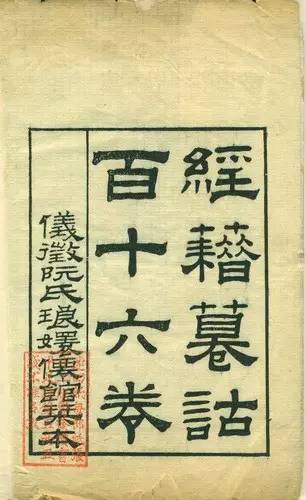 經籍籑詁
百十六卷
儀徵阮氏琅嬛僊館栞本